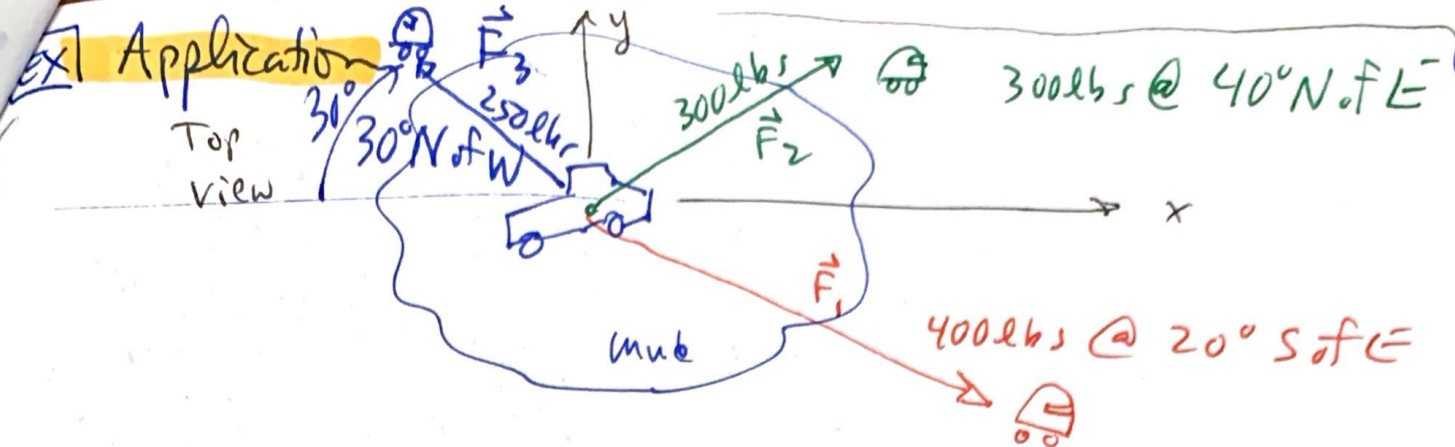 EX Application
Top
view
30°
30° N of W
F⃗3
250lbs
y
300lbs
F⃗2
300lbs @ 40° N of E
x
F⃗1
400lbs @ 20° S of E
mud